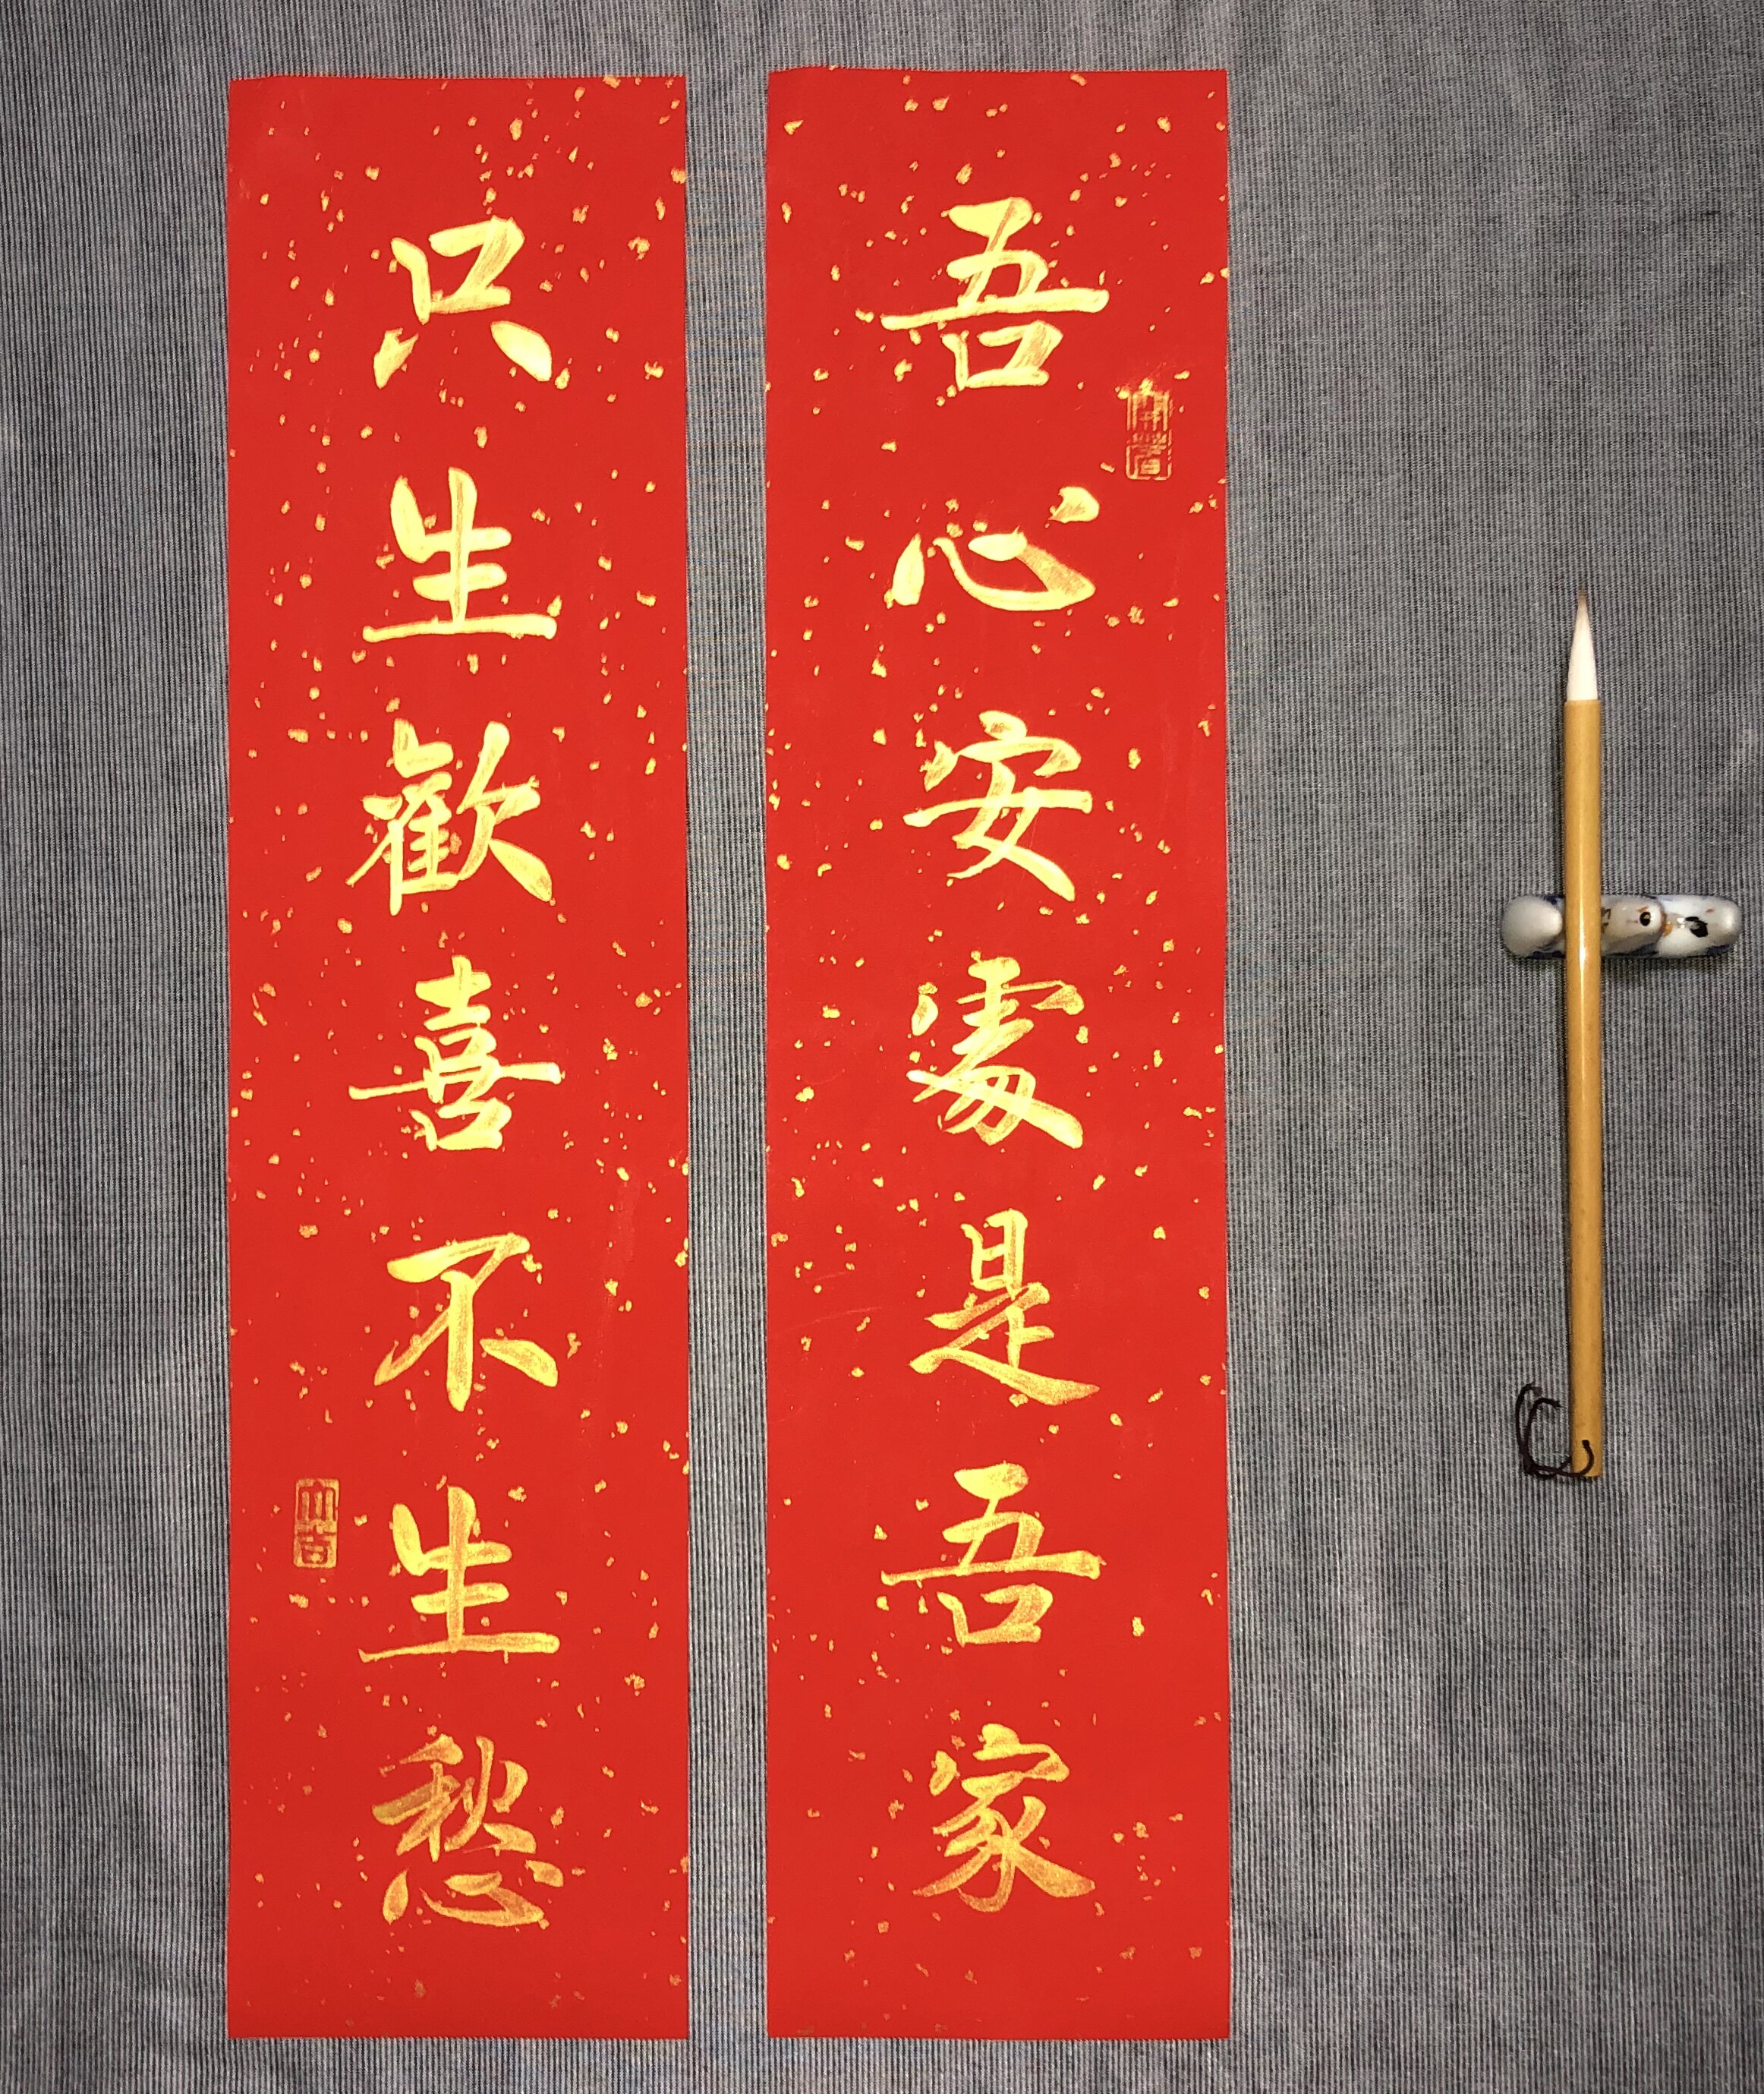 吾心安處是吾家
只生歡喜不生愁
大吉